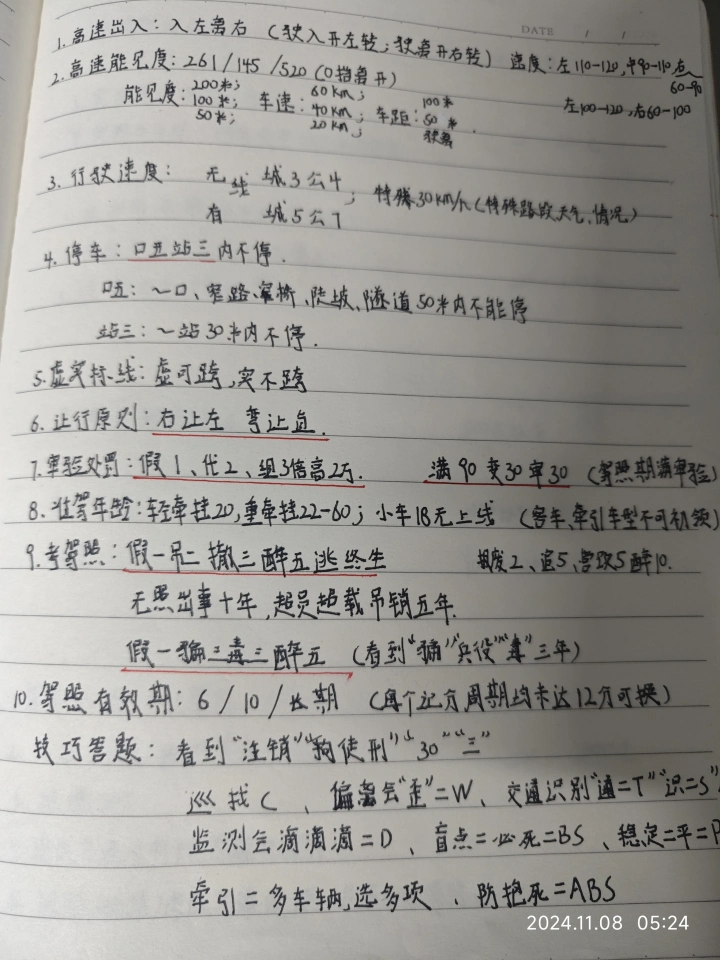 DATE / /
1. 高速出入：入左离右（驶入开左转；驶离开右转） 速度：左110-120，中90-110 右60-90
2. 高速能见度：261/145/520（0档离开） 左100-120，右60-100
能见度：200米； 车速：60km； 车距：100米
100米； 40km； 50米
50米； 20km； 驶离
3. 行驶速度： 无线 城3公4； 特殊30km/h（特殊路段、天气、情况）
有 城5公7
4. 停车：口五站三内不停．
口五：～口、窄路、窄桥、陡坡、隧道50米内不能停
站三：～站30米内不停．
5. 虚实标线：虚可跨，实不跨
6. 让行原则：右让左 弯让直．
7. 审验处罚：假1、代2、组3倍高2万． 满90变30审30（驾照期满审验）
8. 准驾年龄：轻牵挂20，重牵挂22-60；小车18无上线（客车、牵引车型不可初领）
9. 考驾照：假一吊二撤三醉五逃终生 2、追5、营改5醉10.
无照出事十年，超员超载吊销五年．
假一骗三毒三醉五（看到“骗”“兵役”“毒”三年）
10. 驾照有效期：6/10/长期（每个记分周期均未达12分可换）
技巧答题：看到“注销”“拘徒刑”“30”“三”
巡找C、偏离会“歪”=W、交通识别“通=T”“识=S”
监测会滴滴滴=D、盲点=必死=BS、稳定=平=P
牵引=多车辆，选多项、防抱死=ABS
2024.11.08 05:24